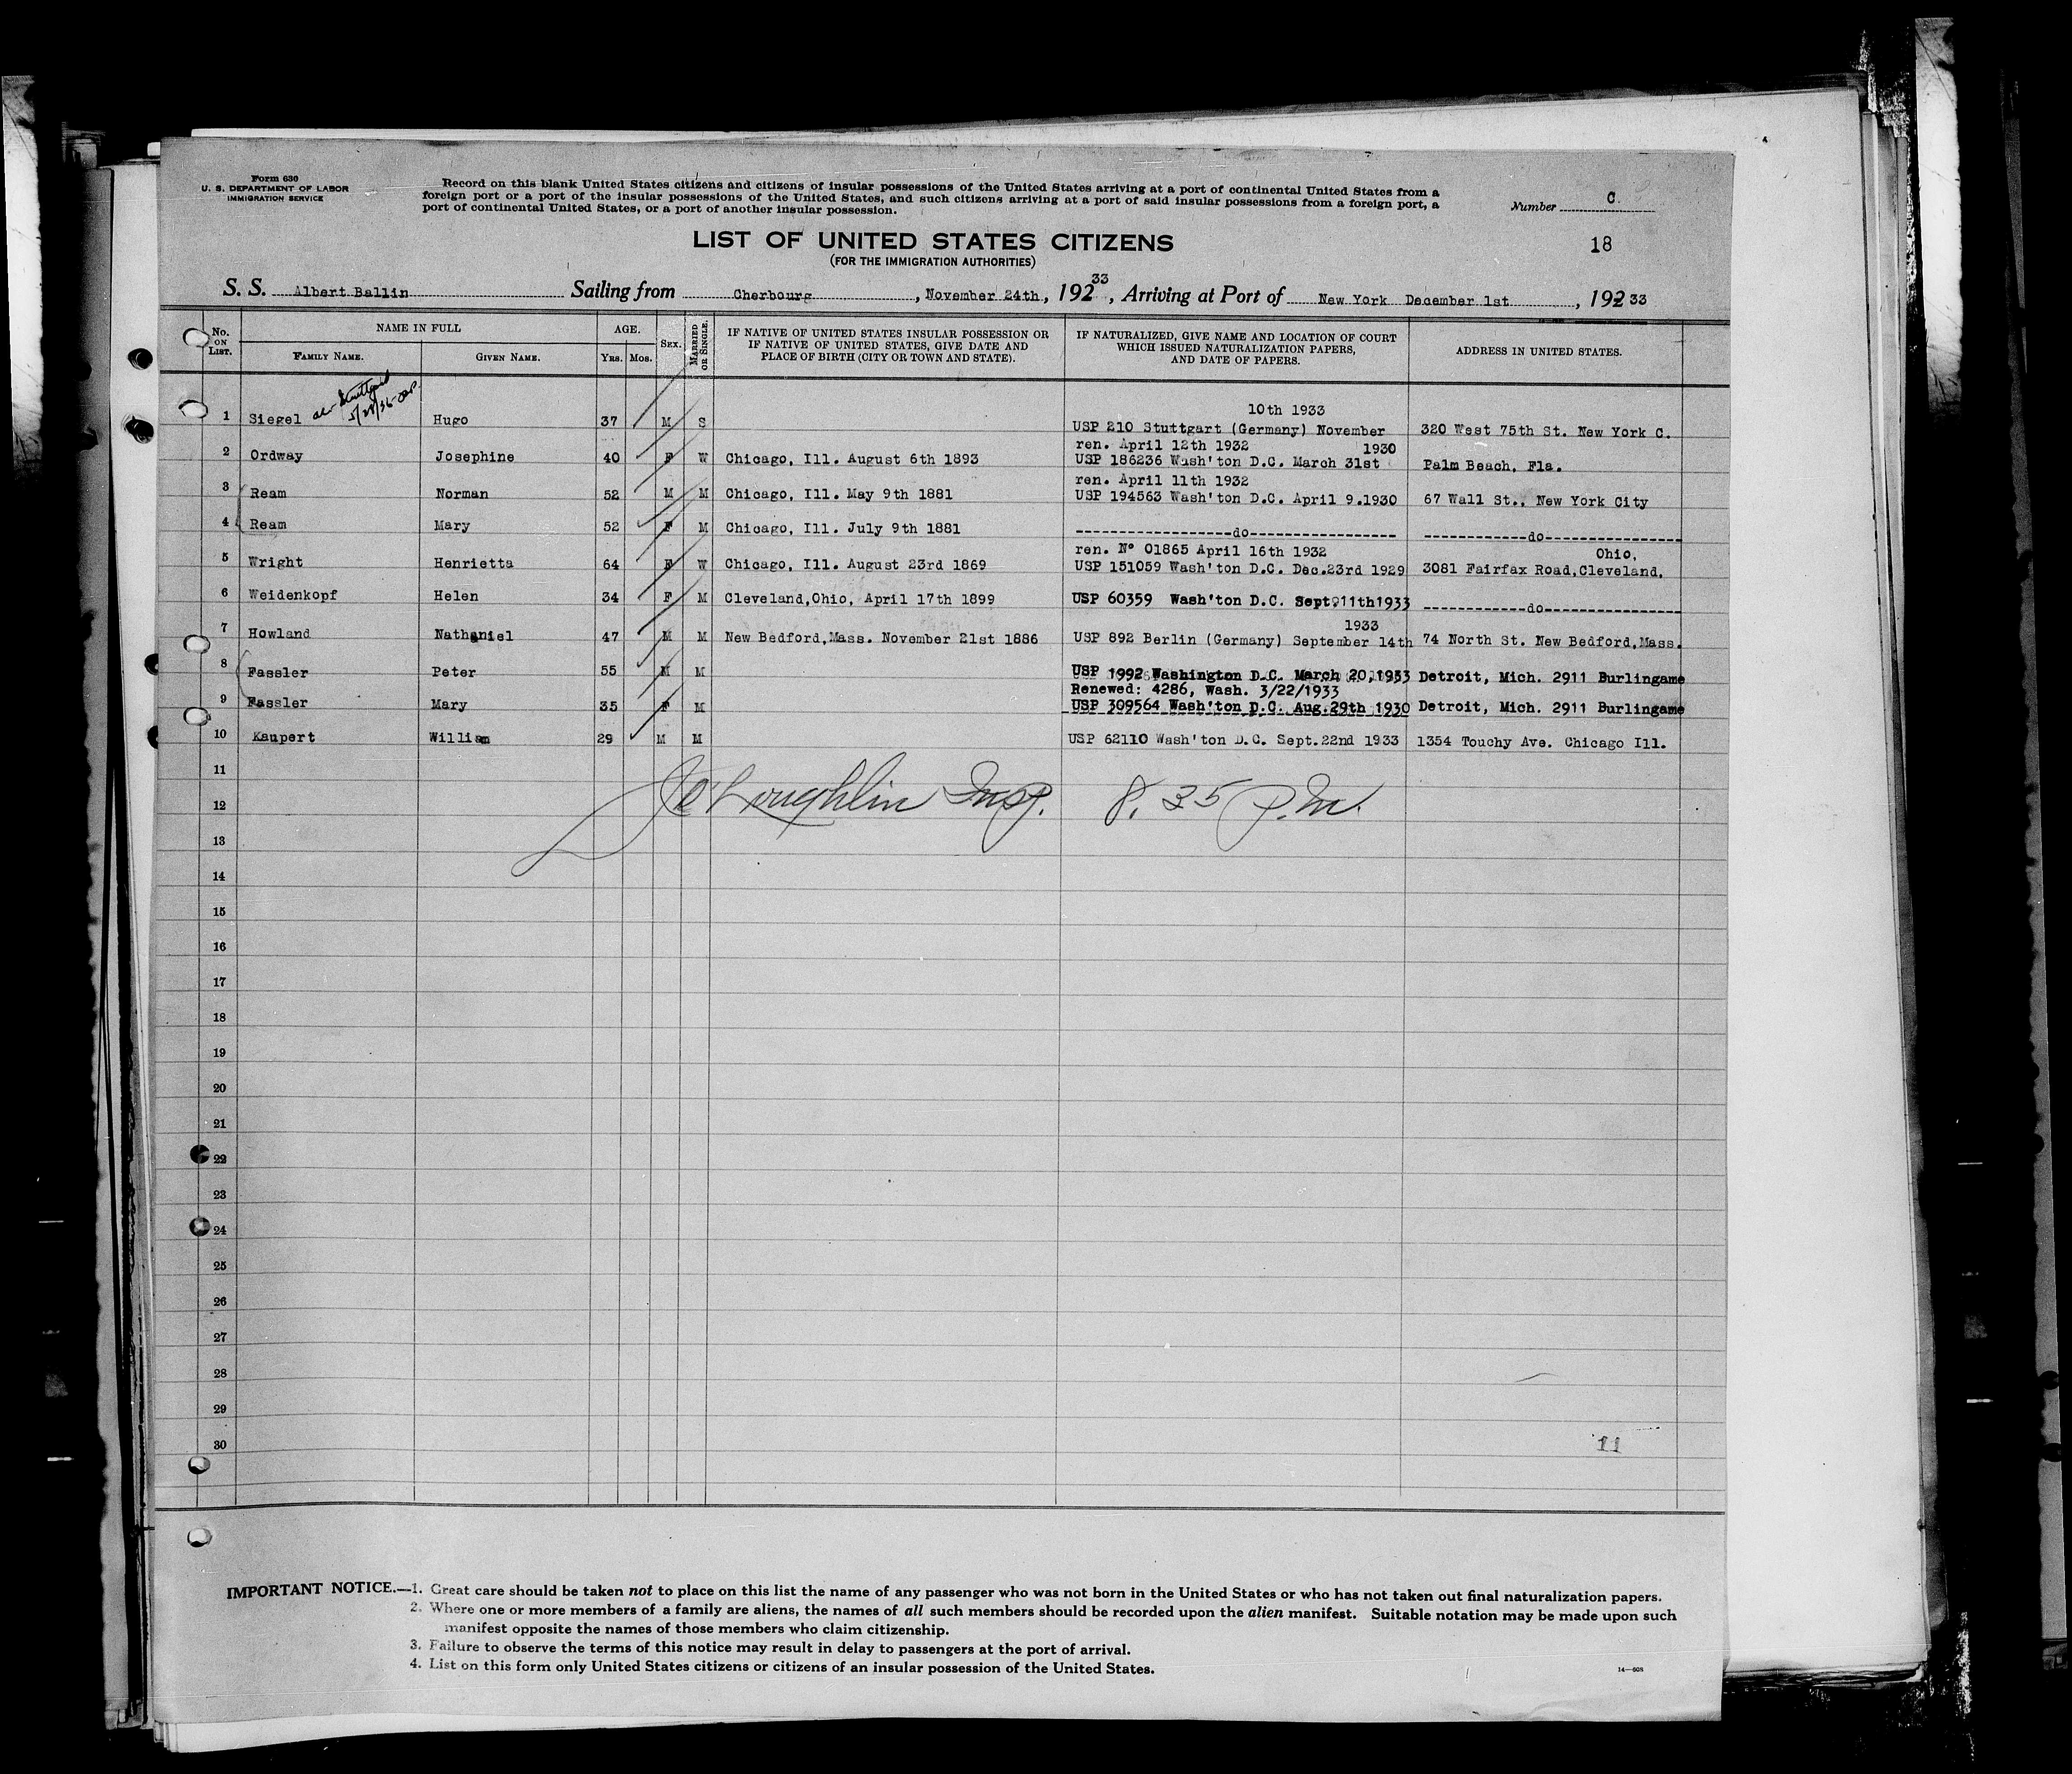 Form 630
U. S. DEPARTMENT OF LABOR
IMMIGRATION SERVICE
Record on this blank United States citizens and citizens of insular possessions of the United States arriving at a port of continental United States from a
foreign port or a port of the insular possessions of the United States, and such citizens arriving at a port of said insular possessions from a foreign port, a
port of continental United States, or a port of another insular possession.
Number C.
LIST OF UNITED STATES CITIZENS
18
(FOR THE IMMIGRATION AUTHORITIES)
S. S. Albert Ballin Sailing from Cherbourg, November 24th, 192 33, Arriving at Port of New York December 1st, 192 33
No. ON LIST. NAME IN FULL AGE. SEX. MARRIED OR SINGLE. IF NATIVE OF UNITED STATES INSULAR POSSESSION OR IF NATIVE OF UNITED STATES, GIVE DATE AND PLACE OF BIRTH (CITY OR TOWN AND STATE). IF NATURALIZED, GIVE NAME AND LOCATION OF COURT WHICH ISSUED NATURALIZATION PAPERS, AND DATE OF PAPERS. ADDRESS IN UNITED STATES.
FAMILY NAME. GIVEN NAME. YRS. MOS.
Stuttgart
10th 1933
1 Siegel Hugo 37 M S USP 210 Stuttgart (Germany) November 320 West 75th St. New York C.
ren. April 12th 1932 1930
2 Ordway Josephine 40 F W Chicago, Ill. August 6th 1893 USP 186236 Wash'ton D.C. March 31st Palm Beach, Fla.
ren. April 11th 1932
3 Ream Norman 52 M M Chicago, Ill. May 9th 1881 USP 194563 Wash'ton D.C. April 9.1930 67 Wall St., New York City
4 Ream Mary 52 F M Chicago, Ill. July 9th 1881 ------------------do----------------- ------------do----------------
ren. Nº 01865 April 16th 1932 Ohio,
5 Wright Henrietta 64 F W Chicago, Ill. August 23rd 1869 USP 151059 Wash'ton D.C. Dec.23rd 1929 3081 Fairfax Road,Cleveland,
6 Weidenkopf Helen 34 F M Cleveland,Ohio, April 17th 1899 USP 60359 Wash'ton D.C. Sept.11th1933 ------------do----------------
1933
7 Howland Nathaniel 47 M M New Bedford,Mass. November 21st 1886 USP 892 Berlin (Germany) September 14th 74 North St. New Bedford,Mass.
8 Fassler Peter 55 M M USP 1992 Washington D.C. March 20,1933 Detroit, Mich. 2911 Burlingame
Renewed: 4286, Wash. 3/22/1933
9 Fassler Mary 35 F M USP 309564 Wash'ton D.C. Aug.29th 1930 Detroit, Mich. 2911 Burlingame
10 Kaupert William 29 M M USP 62110 Wash'ton D.C. Sept.22nd 1933 1354 Touchy Ave. Chicago Ill.
11
12 O'Loughlin Insp. 8.35 P.M.
13
14
15
16
17
18
19
20
21
22
23
24
25
26
27
28
29
30 11
IMPORTANT NOTICE.—1. Great care should be taken not to place on this list the name of any passenger who was not born in the United States or who has not taken out final naturalization papers.
2. Where one or more members of a family are aliens, the names of all such members should be recorded upon the alien manifest. Suitable notation may be made upon such
manifest opposite the names of those members who claim citizenship.
3. Failure to observe the terms of this notice may result in delay to passengers at the port of arrival.
4. List on this form only United States citizens or citizens of an insular possession of the United States.
14—608